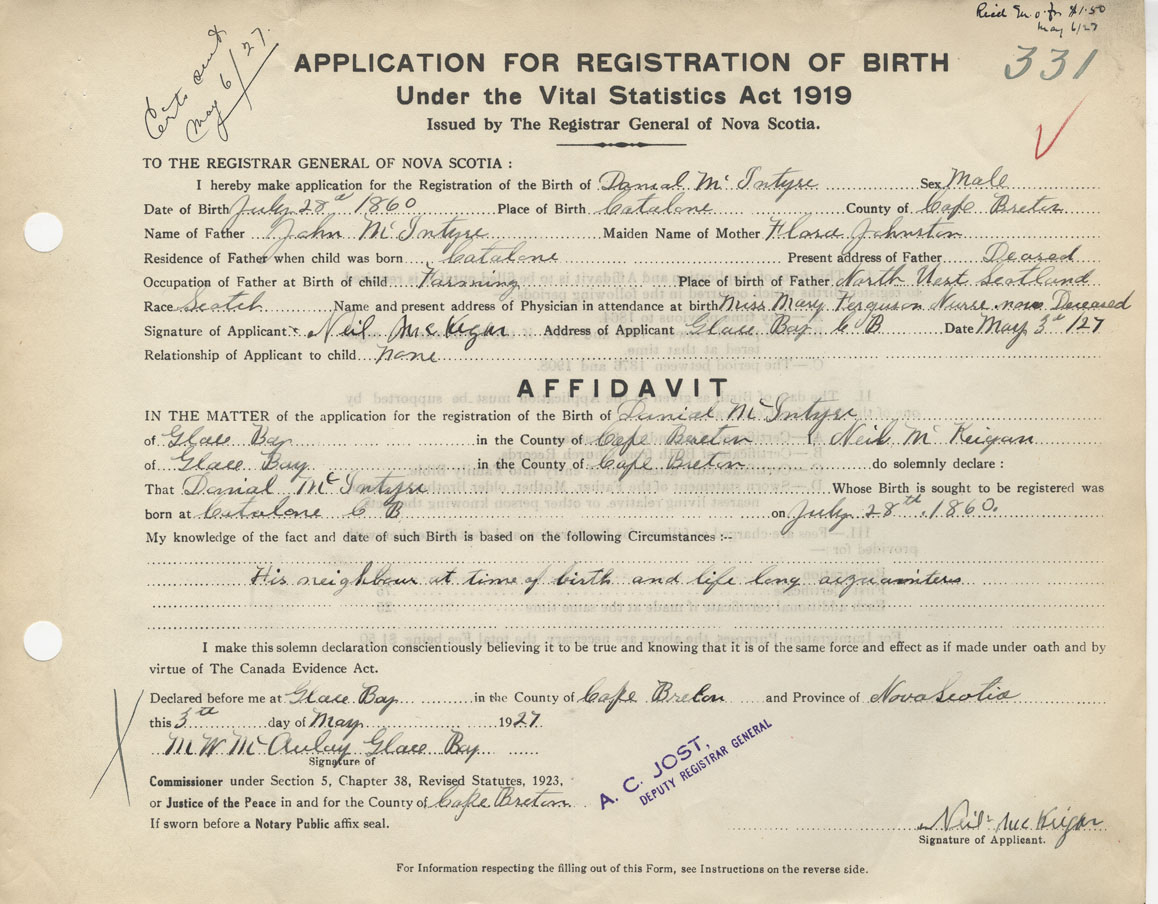 Certs sent
May 6/27.
Recd M.O. for $1.50
May 6/27
331
APPLICATION FOR REGISTRATION OF BIRTH
Under the Vital Statistics Act 1919
Issued by The Registrar General of Nova Scotia.
TO THE REGISTRAR GENERAL OF NOVA SCOTIA :
I hereby make application for the Registration of the Birth of Danial Mc Intyre Sex Male
Date of Birth July 28th 1860 Place of Birth Catalone County of Cape Breton
Name of Father John Mc Intyre Maiden Name of Mother Flora Johnston
Residence of Father when child was born Catalone Present address of Father Deased
Occupation of Father at Birth of child Farming Place of Birth of Father North Uest Scotland
Race Scotch Name and present address of Physician in attendance at birth Miss Mary Ferguson Nurse now Deceased
Signature of Applicant Neil McKigan Address of Applicant Glace Bay C B Date May 3rd /27
Relationship of Applicant to child none
AFFIDAVIT
IN THE MATTER of the application for the registration of the Birth of Danial Mc Intyre
of Glace Bay in the County of Cape Breton I, Neil Mc Keigan
of Glace Bay in the County of Cape Breton do solemnly declare :
That Danial Mc Intyre Whose Birth is sought to be registered was
born at Catalone C B on July 28th, 1860.
My knowledge of the fact and date of such Birth is based on the following Circumstances :--
His neighbour at time of birth and life long
I make this solemn declaration conscientiously believing it to be true and knowing that it is of the same force and effect as if made under oath and by
virtue of The Canada Evidence Act.
Declared before me at Glace Bay in the County of Cape Breton and Province of Nova Scotia
this 3th day of May 1927
M W McAulay Glace Bay
Signature of
Commissioner under Section 5, Chapter 38, Revised Statutes, 1923,
or Justice of the Peace in and for the County of Cape Breton
If sworn before a Notary Public affix seal.
A. C. JOST,
DEPUTY REGISTRAR GENERAL
Neil McKigan
Signature of Applicant.
For Information respecting the filling out of this Form, see Instructions on the reverse side.